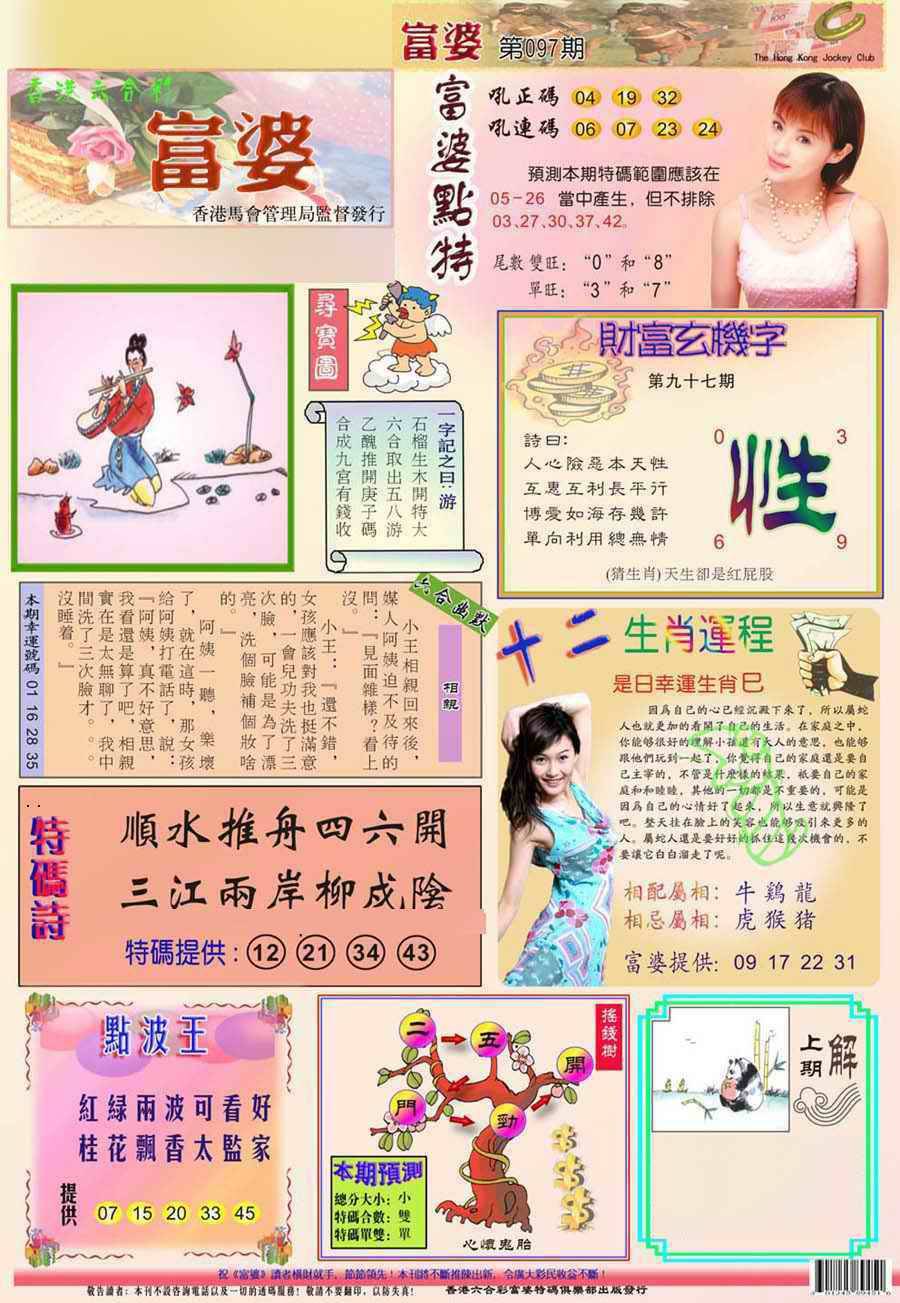 富婆 第097期
The Hong Kong Jockey Club
香港六合彩
富婆
香港馬會管理局監督發行
富婆點特
吼正碼 04 19 32
吼連碼 06 07 23 24
預測本期特碼範圍應該在
05-26 當中產生，但不排除
03、27、30、37、42。
尾數 雙旺：“0”和“8”
單旺：“3”和“7”
尋寶圖
一字記之曰：游
石榴生木開特大
六合取出五八游
乙醜推開庚子碼
合成九宮有錢收
財富玄機字
第九十七期
詩曰：
人心險惡本天性
互惠互利長平行
博愛如海存幾許
單向利用總無情
0 3
性
6 9
(猜生肖)天生卻是紅屁股
六合幽默
相親
小王相親回來後，
媒人阿姨迫不及待的
問：『見面雜樣？看上
沒。』
小王：『還不錯，
女孩應該對我也挺滿意
的，一會兒功夫洗了三
次臉，可能是為了漂
亮，洗個臉補個妝
的。』
阿姨一聽，樂壞
了，就在這時，那女孩
給阿姨打電話了，說：
『阿姨，真不好意思，
我看還是算了吧，相親
實在是太無聊了，我中
間洗了三次臉才。。。
沒睡着。』
本期幸運號碼 01 16 28 35
十二生肖運程
是日幸運生肖巳
因為自己的心已經沉澱下來了，所以屬蛇
人也就更加的看開了自己的生活。在家庭之中，
你能够很好的理解小孩還有大人的意思，也能够
跟他們玩到一起了，你覺得自己的家庭還是要自
己主宰的，不管是什麼樣的結果，祇要自己的家
庭和和睦睦，其他的一切都是不重要的，可能是
因為自己的心情好了起來，所以生意就興隆了
吧。整天挂在臉上的笑容也能够吸引來更多的
人。屬蛇人還是要好好的抓住這幾次機會的，不
要讓它白白溜走了呢。
相配屬相：牛 鷄 龍
相忌屬相：虎 猴 猪
富婆提供：09 17 22 31
特碼詩
順水推舟四六開
三江兩岸柳成陰
特碼提供：12 21 34 43
點波王
紅緑兩波可看好
桂花飄香太監家
提供 07 15 20 33 45
搖錢樹
二 五 開
門 勁
本期預測
總分大小：小
特碼合數：雙
特碼單雙：單
心懷鬼胎
上期解
祝《富婆》讀者橫財就手，節節領先！本刊將不斷推陳出新，令廣大彩民收益不斷！
敬告讀者：本刊不設咨詢電話以及一切的透碼服務！敬請不要翻印，以防失真！ 香港六合彩富婆特碼俱樂部出版發行